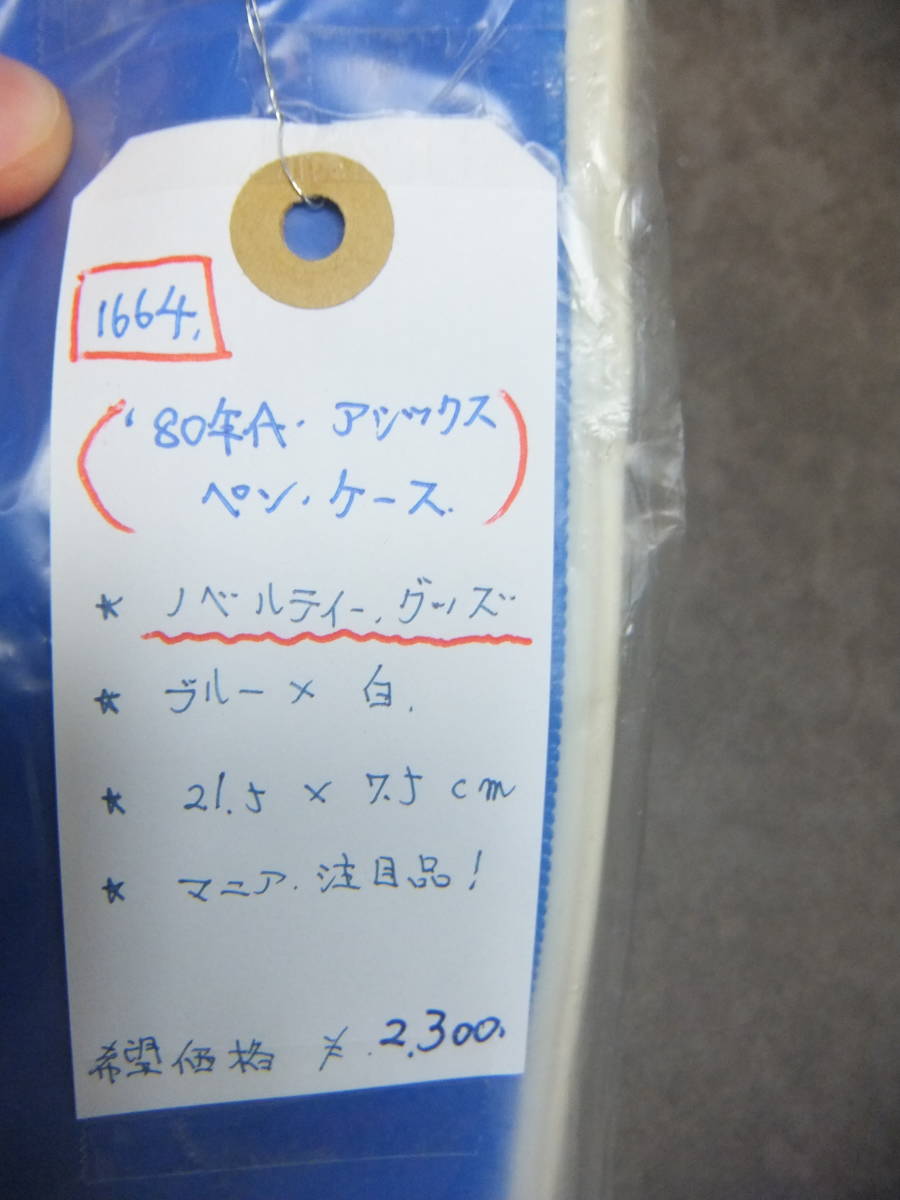 1664.
'80年A・アシックス
ペン・ケース.
★ ノベルティー.グッズ
★ ブルー × 白.
★ 21.5 × 7.5 cm
★ マニア.注目品!
希望価格 ¥.2,300.